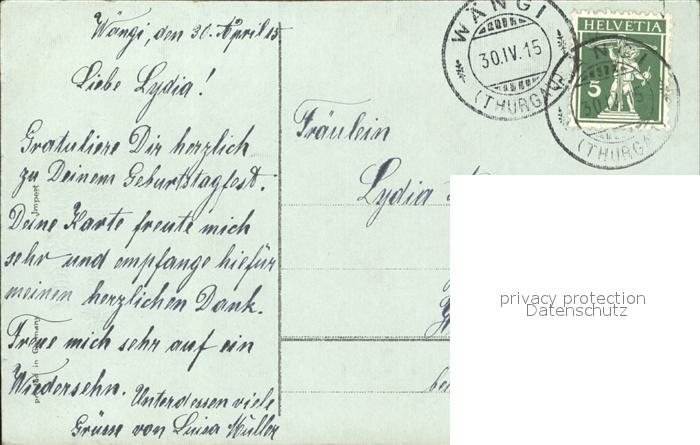 Wängi, den 30. April 15
Liebe Lydia!
Gratuliere Dir herzlich
zu Deinem Geburtstagfest.
Deine Karte freute mich
sehr und empfange hiefür
meinen herzlichen Dank.
Freue mich sehr auf ein
Wiedersehn. Unterdessen viele
Grüsse von Luisa Müller
Import
printed in Germany
WÄNGI
30.IV.15
(THURGAU)
HELVETIA
5
(THURGA
Fräulein
Lydia
privacy protection
Datenschutz